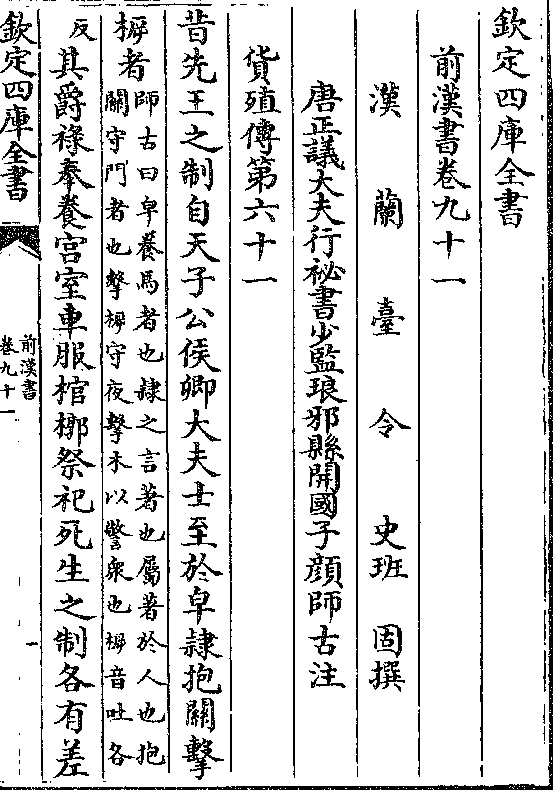 欽定四庫全書
前漢書卷九十一
漢蘭臺令史班固撰
唐正議大夫行祕書少監琅邪縣開國子顔師古注
貨殖傳第六十一
昔先王之制自天子公侯卿大夫士至於皁隷抱關擊
𣔳者師古曰皁養馬者也隷之言著也屬著於人也抱
關守門者也擊𣔳守夜擊木以警衆也𣔳音吐各
反其爵祿奉養宫室車服棺槨祭祀死生之制各有差
欽定四庫全書
前漢書
卷九十一
一